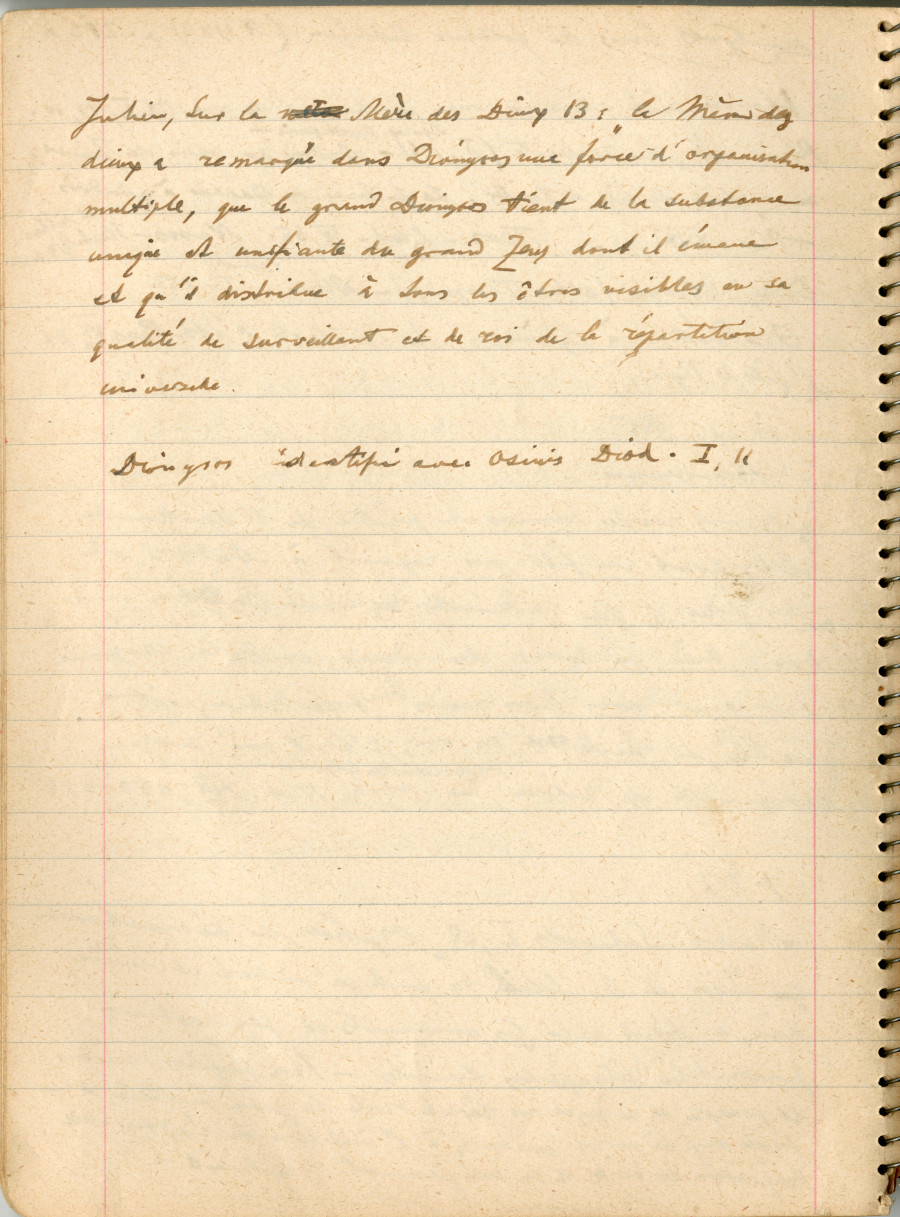 Julien, Sur la Mère des Dieux 13 : "la Mère des
dieux a remarqué dans Dionysos une force d'organisation
multiple, que le grand Dionysos tient de la substance
unique et unifiante du grand Zeus dont il émane
et qu'il distribue à tous les êtres visibles en sa
qualité de surveillant et de roi de la répartition
universelle.
Dionysos identifié avec Osiris Diod. I, 11